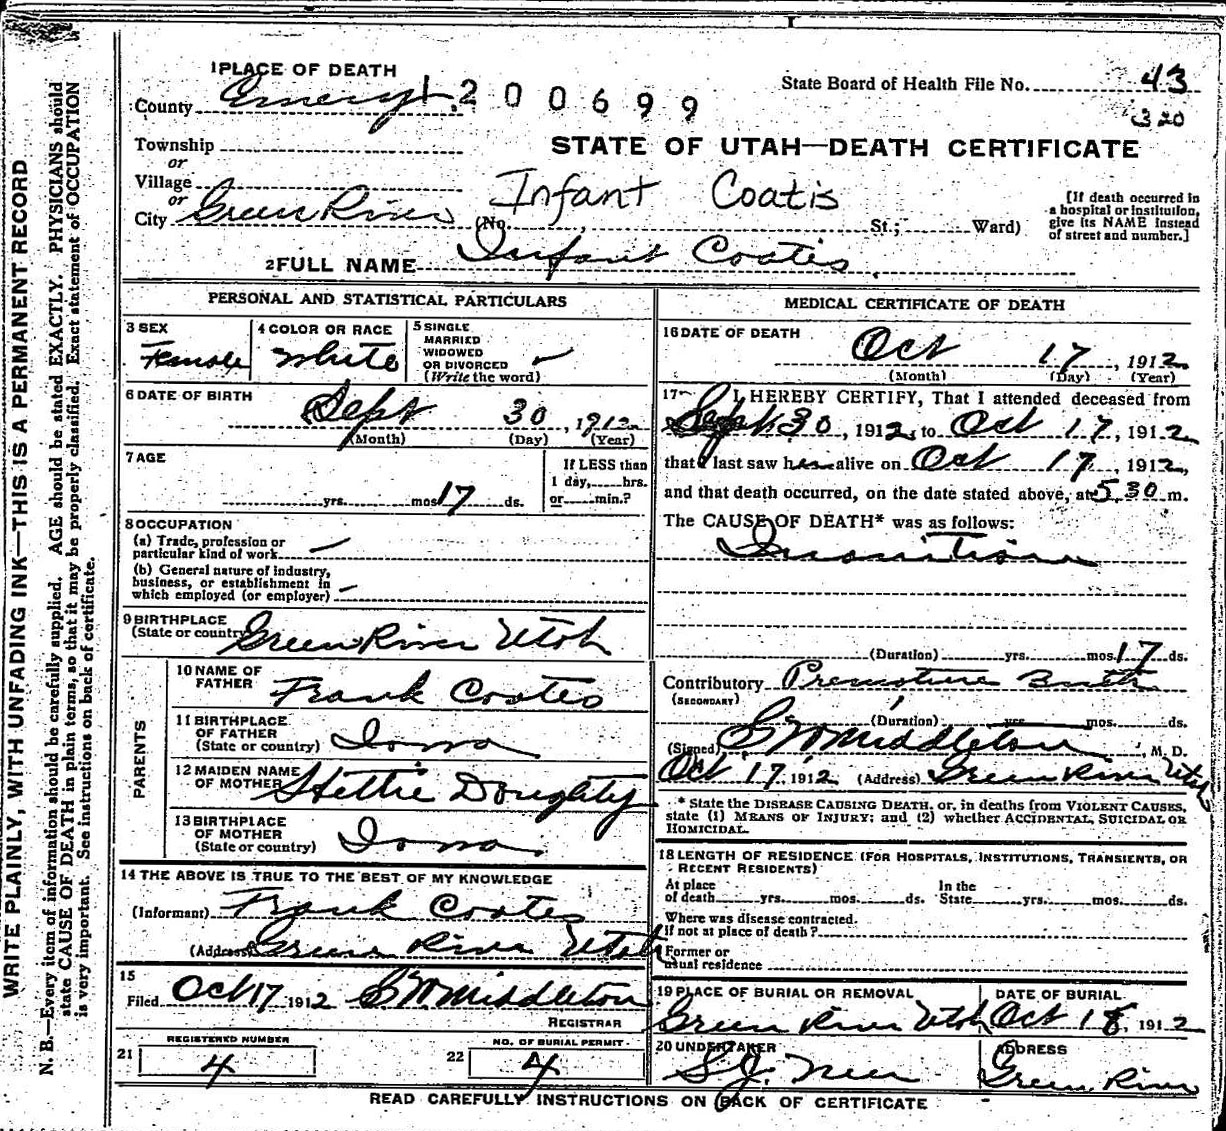 1 PLACE OF DEATH
County Emery 1200699
State Board of Health File No. 43
320
Township
or
Village
or
City Green River (No. , St.; Ward)
STATE OF UTAH—DEATH CERTIFICATE
Infant Coatis
[If death occurred in
a hospital or institution,
give its NAME instead
of street and number.]
2 FULL NAME Infant Coates
PERSONAL AND STATISTICAL PARTICULARS
3 SEX
Female
4 COLOR OR RACE
White
5 SINGLE
MARRIED
WIDOWED
OR DIVORCED
(Write the word)
6 DATE OF BIRTH
Sept 30, 1912
(Month) (Day) (Year)
7 AGE
yrs. mos. 17 ds.
If LESS than
1 day, hrs.
or min.?
8 OCCUPATION
(a) Trade, profession or
particular kind of work
(b) General nature of industry,
business, or establishment in
which employed (or employer)
9 BIRTHPLACE
(State or country) Green River Utah
PARENTS
10 NAME OF
FATHER Frank Coates
11 BIRTHPLACE
OF FATHER
(State or country) Iowa
12 MAIDEN NAME
OF MOTHER Hettie Doughty
13 BIRTHPLACE
OF MOTHER
(State or country) Iowa
14 THE ABOVE IS TRUE TO THE BEST OF MY KNOWLEDGE
(Informant) Frank Coates
(Address) Green River Utah
15
Filed Oct 17 1912 Middleton
REGISTRAR
21 REGISTERED NUMBER
4
22 NO. OF BURIAL PERMIT
4
MEDICAL CERTIFICATE OF DEATH
16 DATE OF DEATH
Oct 17, 1912
(Month) (Day) (Year)
17 I HEREBY CERTIFY, That I attended deceased from
Sept 30, 1912, to Oct 17, 1912
that I last saw her alive on Oct 17, 1912,
and that death occurred, on the date stated above, at 5.30 m.
The CAUSE OF DEATH* was as follows:
Inanition
(Duration) yrs. mos. 17 ds.
Contributory Premature Birth
(SECONDARY)
(Duration) yrs mos. ds.
(Signed) Middleton, M. D.
Oct 17, 1912 (Address) Green River Utah
* State the DISEASE CAUSING DEATH, or, in deaths from VIOLENT CAUSES,
state (1) MEANS OF INJURY; and (2) whether ACCIDENTAL, SUICIDAL OR
HOMICIDAL.
18 LENGTH OF RESIDENCE (FOR HOSPITALS, INSTITUTIONS, TRANSIENTS, OR
RECENT RESIDENTS)
At place
of death yrs. mos. ds.
In the
State yrs. mos. ds.
Where was disease contracted.
if not at place of death?
Former or
usual residence
19 PLACE OF BURIAL OR REMOVAL
Green River Utah
DATE OF BURIAL
Oct 18, 1912
20 UNDERTAKER
ADDRESS
Green River
READ CAREFULLY INSTRUCTIONS ON BACK OF CERTIFICATE
WRITE PLAINLY, WITH UNFADING INK—THIS IS A PERMANENT RECORD
N. B.—Every item of information should be carefully supplied. AGE should be stated EXACTLY. PHYSICIANS should
state CAUSE OF DEATH in plain terms, so that it may be properly classified. Exact statement of OCCUPATION
is very important. See instructions on back of certificate.